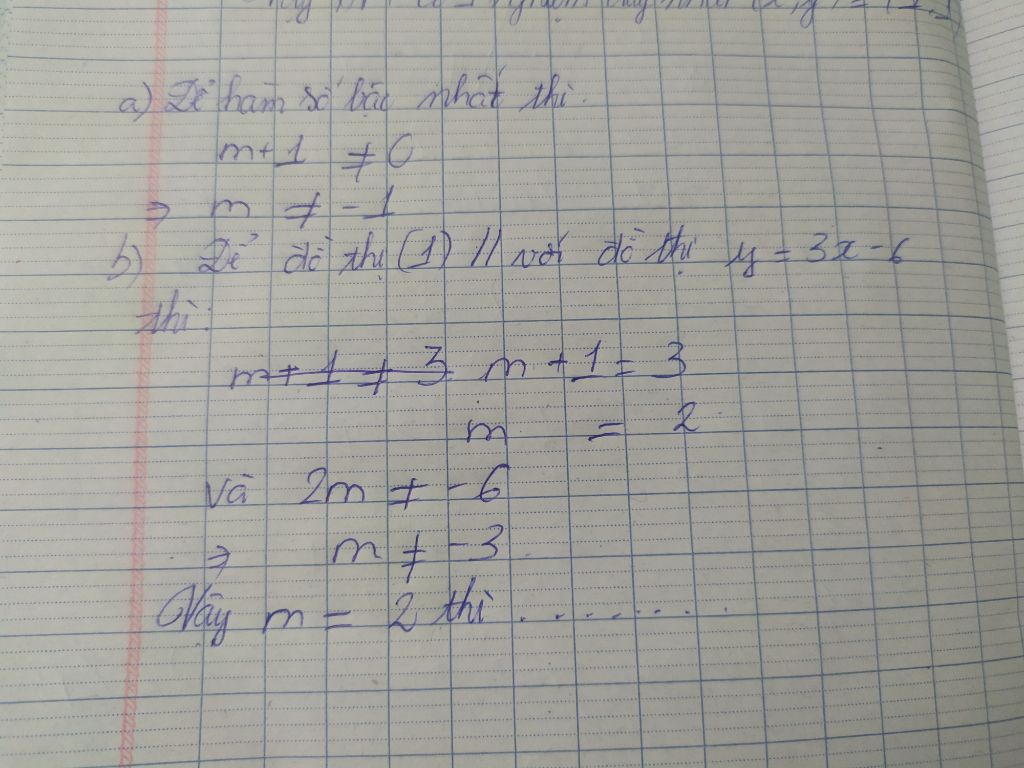 a) Để hàm số bậc nhất thì.
m+1 ≠ 0
⇒ m ≠ -1
b) Để đồ thị (1) // với đồ thị y = 3x - 6
thì:
m+1 ≠ 3 m + 1 = 3
m = 2
Và 2m ≠ -6
⇒ m ≠ -3
Vậy m = 2 thì . . . . . . . . .